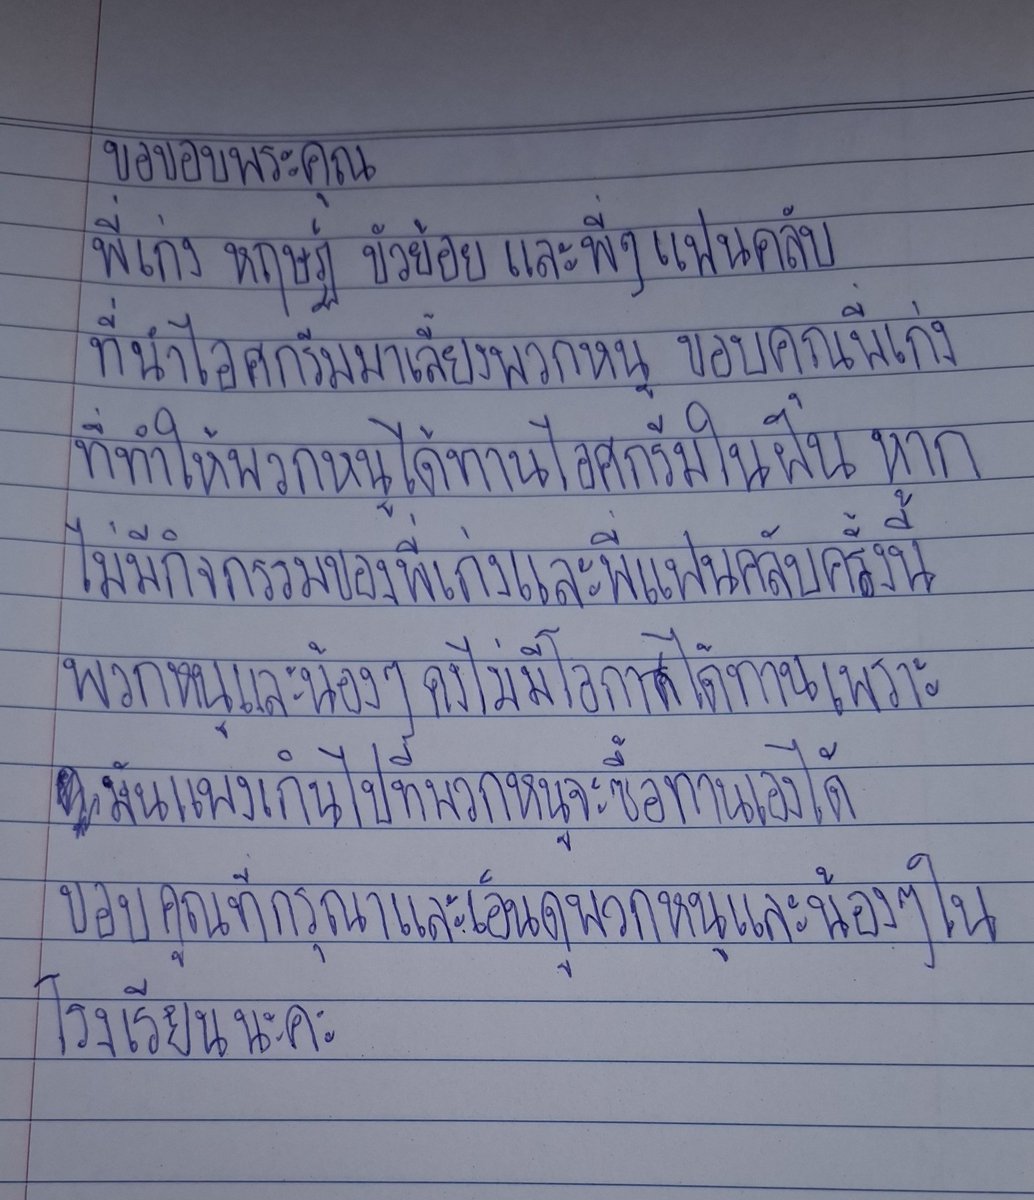 ขอขอบพระคุณ
พี่เก่ง หฤษฎ์ บัวย้อย และพี่ๆ แฟนคลับ
ที่นำไอศกรีมมาเลี้ยงพวกหนู ขอบคุณพี่เก่ง
ที่ทำให้พวกหนูได้ทานไอศกรีมในฝัน หาก
ไม่มีกิจกรรมของพี่เก่งและพี่แฟนคลับครั้งนี้
พวกหนูและน้องๆ คงไม่มีโอกาสได้ทานเพราะ
มันแพงเกินไปที่พวกหนูจะซื้อทานเองได้
ขอบคุณที่กรุณาและเอ็นดูพวกหนูและน้องๆ ใน
โรงเรียนนะคะ